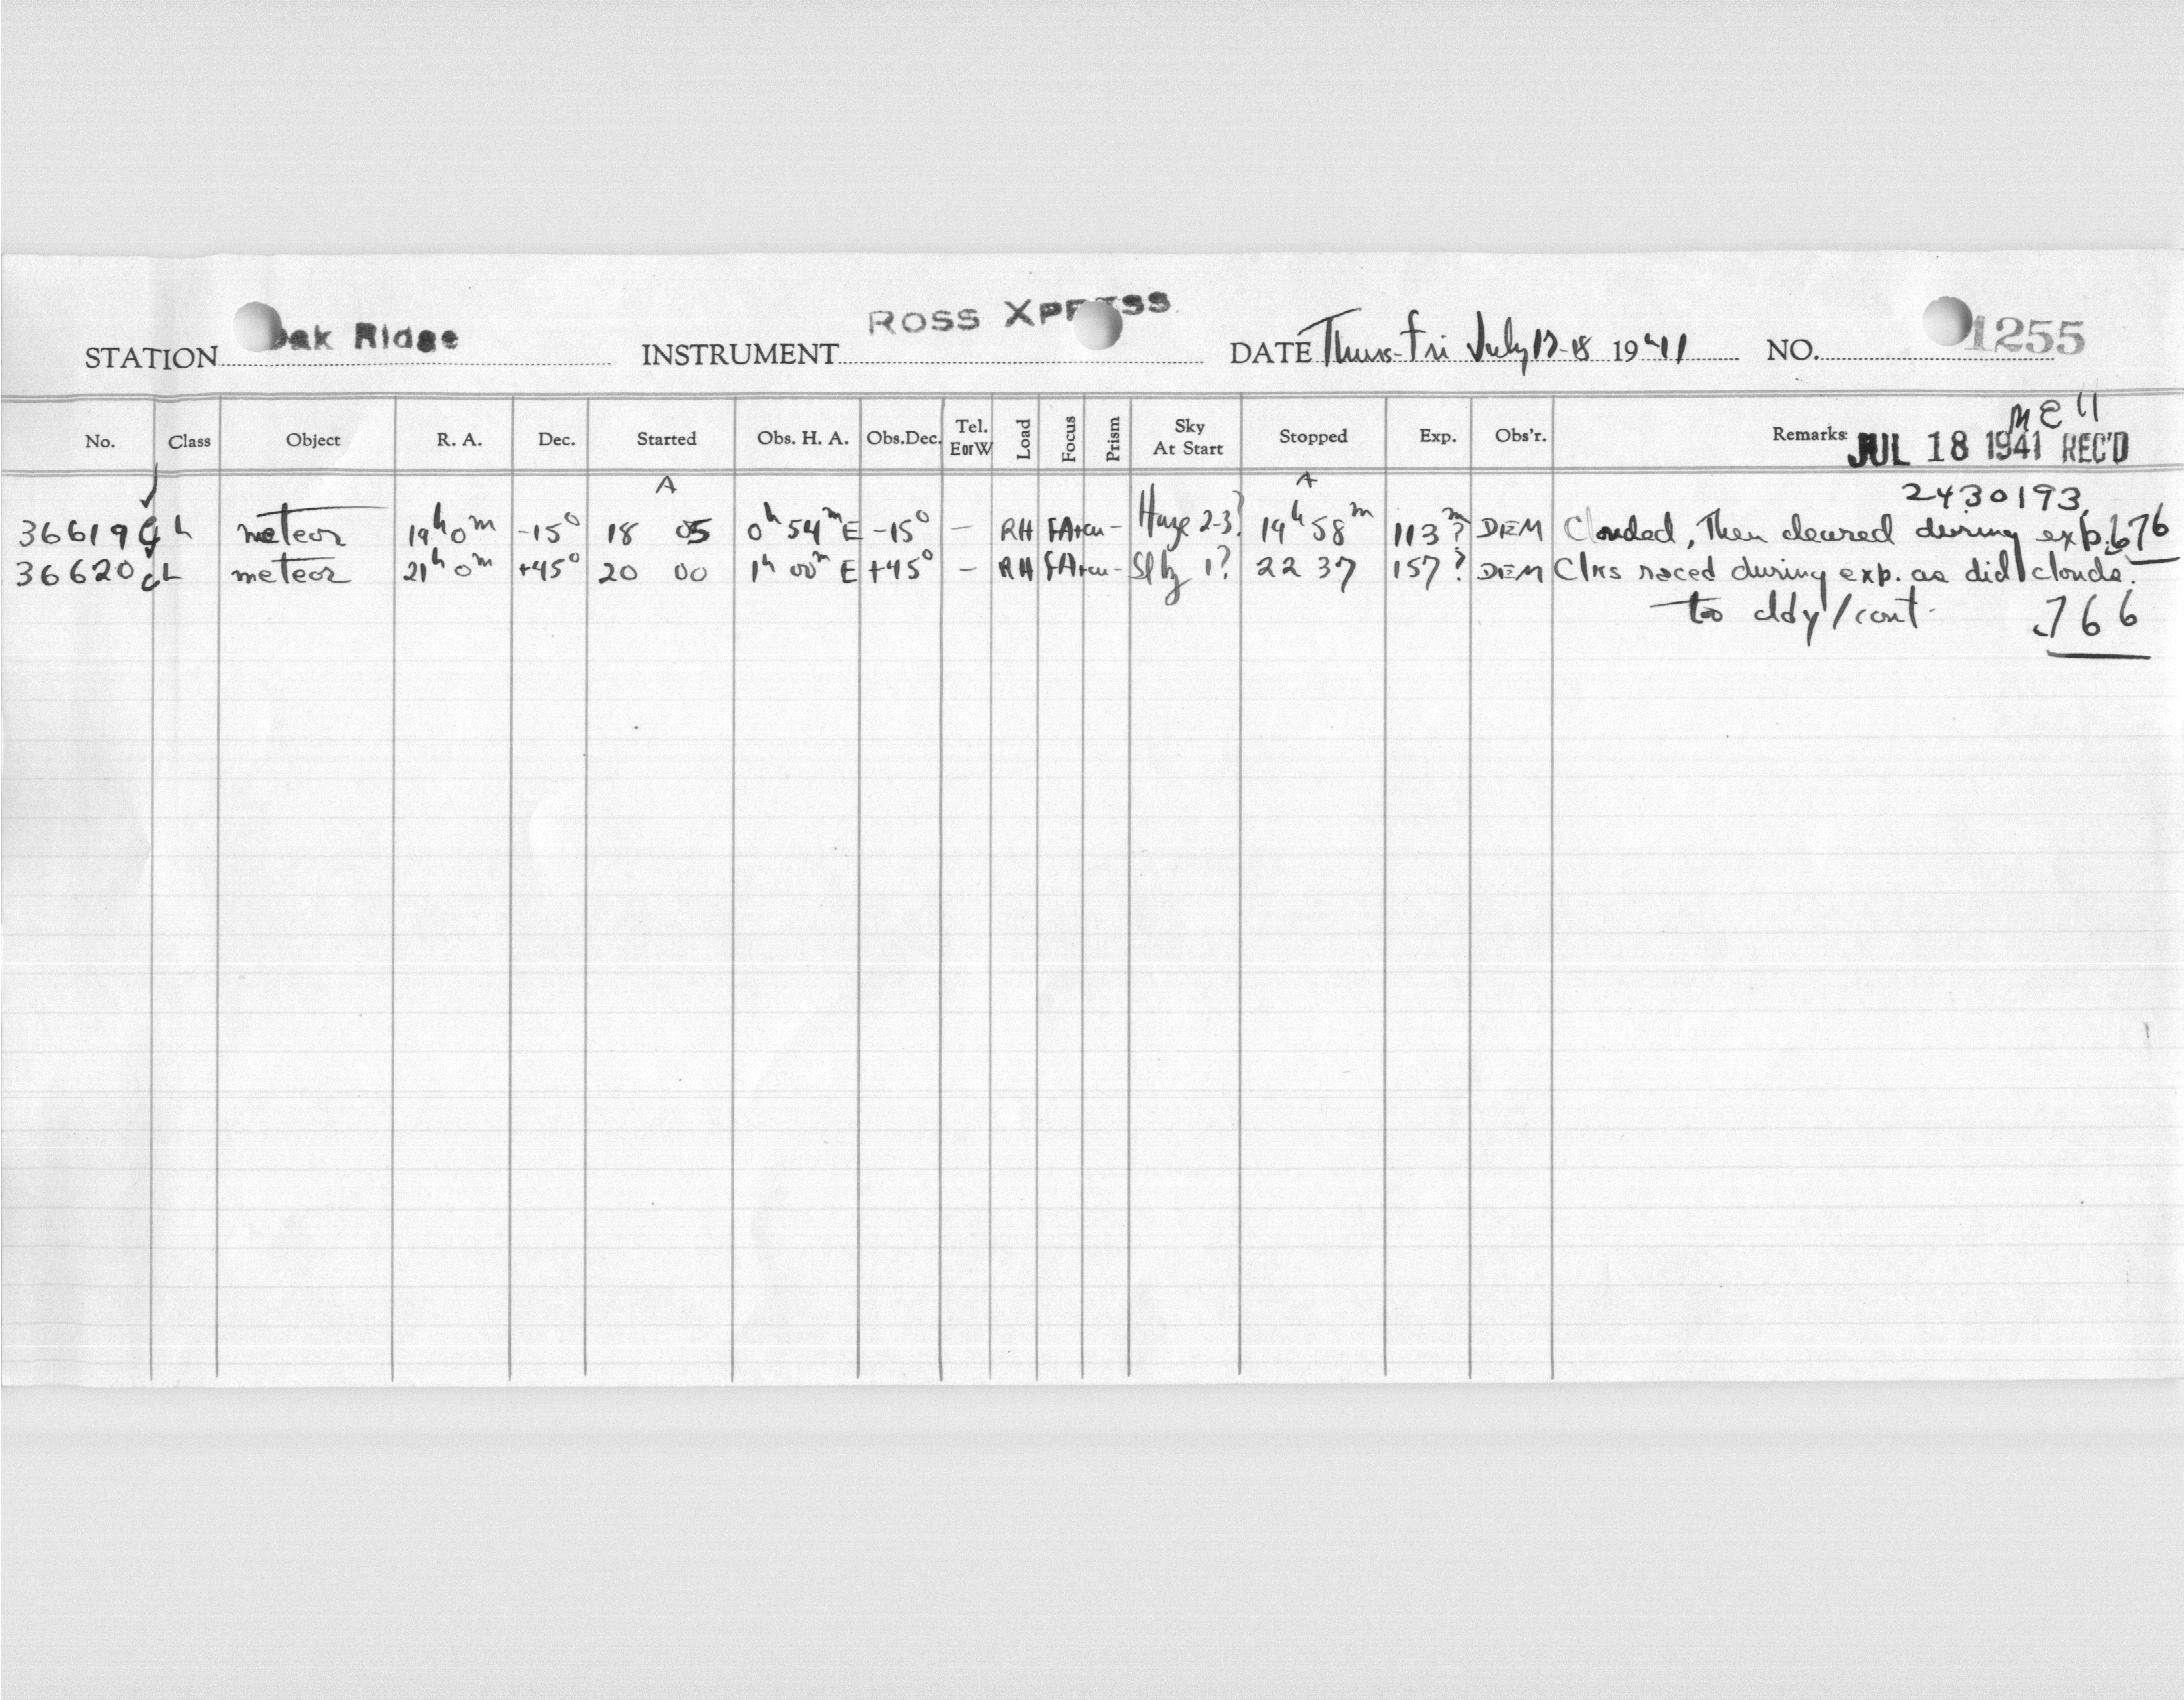 STATION Oak Ridge INSTRUMENT ROSS XPRESS DATE Thurs-Fri July 17-18 1941 NO. 1255
No. Class Object R. A. Dec. Started Obs. H. A. Obs.Dec. Tel. EorW Load Focus Prism Sky At Start Stopped Exp. Obs'r. Remarks
JUL 18 1941 REC'D
A A 2430193.
36619 L meteor 19h 0m -15° 18 05 0h 54m E -15° — RH - Haze 2-3? 19h 58m 113m? DEM Clouded, then cleared during exp. .676
36620 L meteor 21h 0m +45° 20 00 1h 00m E +45° — RH - 1? 22 37 157? DEM Clks raced during exp. as did clouds.
too cldy/cont. .766